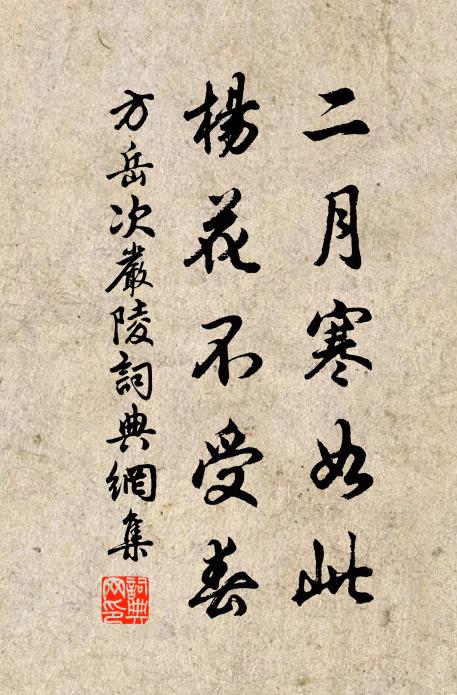 二月寒如此
楊花不受春
方岳次嚴陵詞典網集
詞典網印